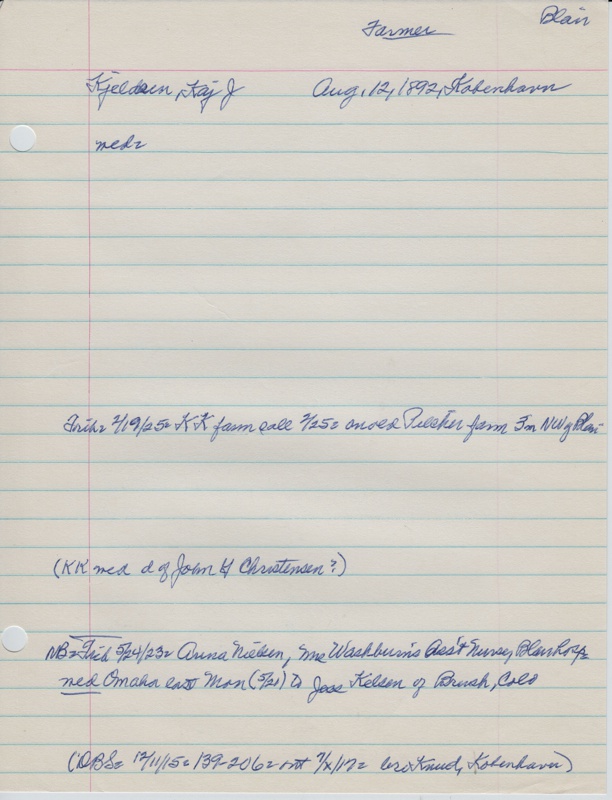 Blair
Farmer
Kjeldsen, Kaj J Aug, 12, 1892, Kobenhavn
med=
Trib= 2/19/25= KK farm sale 2/25= on old Pilcher farm 3m NW of Blair
(KK med d of John H Christensen?)
NB= Trib 5/24/23= Anna Nielsen, Mrs Washburn's Ass't Nurse, Blair hosp=
med Omaha last Mon (5/21) to Jess Kelsen of Brush, Colo
(DBS= 12/11/15= 139-206= 7/x/17= bro Knud, Kobenhavn)